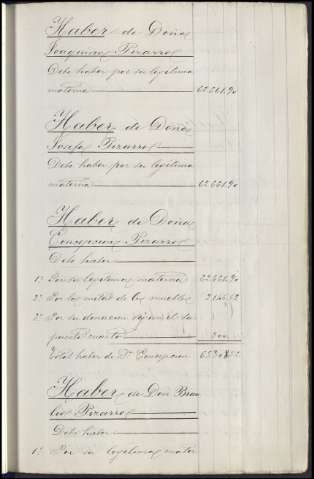 Haber de Doña
Joaquina Pizarro
Debe haber por su legitima
materna 62.661,90
Haber de Doña
Josefa Pizarro
Debe haber por su legitima
materna 62.661,90
Haber de Doña
Concepcion Pizarro
Debe haber
1º Por su legitima materna 62.661,90
2º Por la mitad de los muebles
3º Por su donacion segun el su
puesto cuarto
Total haber de Dª Concepcion
Haber de Don Brau
lio Pizarro
Debe haber
1º Por su legitima mater